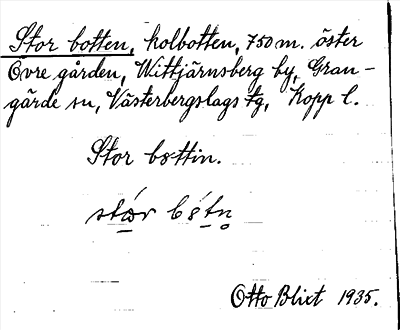 Stor botten, kolbotten, 750 m. öster
Övre gården, Wittjärnsberg by, Gran-
gärde sn, Västerbergslags tg, Kopp l.
Stor bottin.
Otto Blixt 1935.